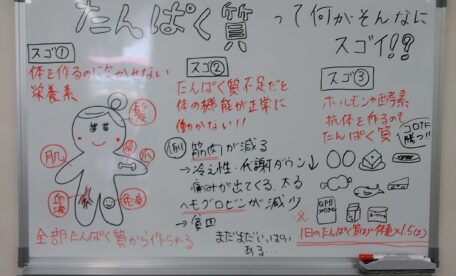 たんぱく質 って何がそんなに
スゴイ!?
スゴ①
体を作るのに欠かせない
栄養素
髪
肌
歯
爪
血液
免疫
全部たんぱく質から作られる
スゴ②
たんぱく質不足だと
体の機能が正常に
働かない!!
(例) 筋肉が減る
→冷え性・代謝ダウン↓
痛みが出てくる、太る
ヘモグロビンが減少
→貧血
まだまだいっぱい
ある…
スゴ③
ホルモンや酵素
抗体を作るのも
たんぱく質
コロナに
勝つ!!
※
1日のたんぱく質は体重×1.5(g)